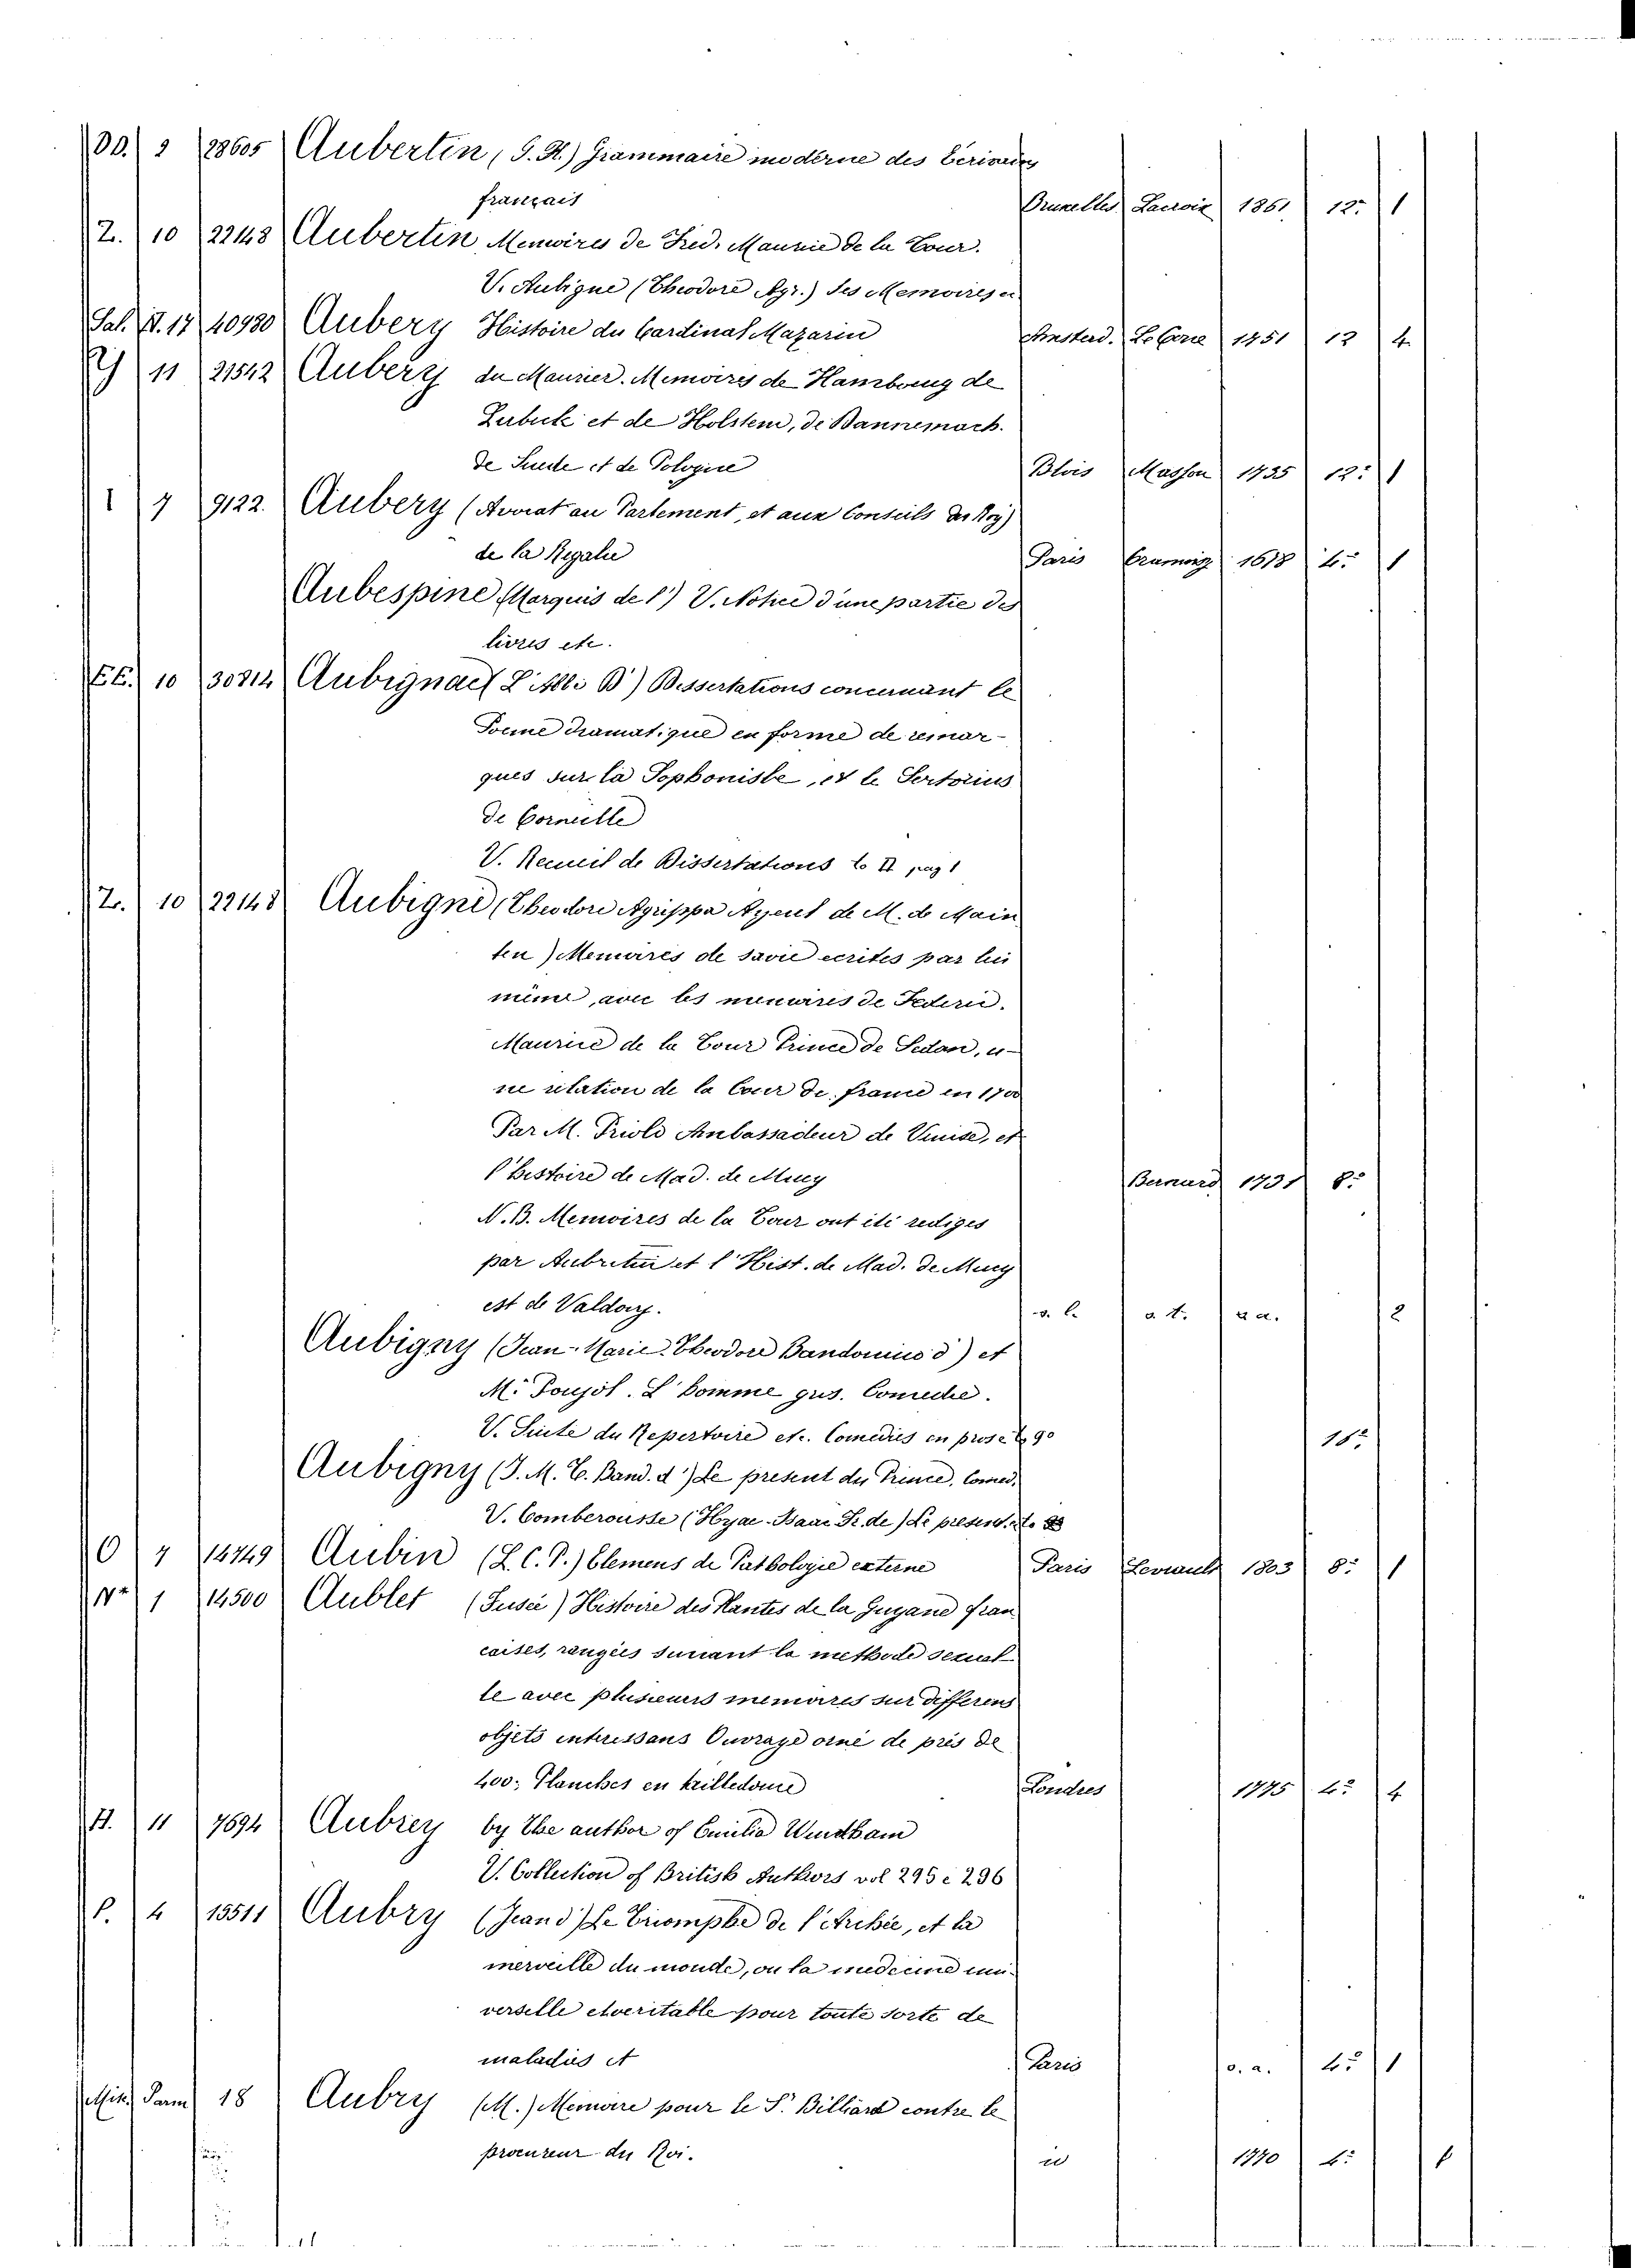 DD. 2 28605 Aubertin (G. H.) Grammaire moderne des Ecrivains
français Bruxelles Lacroix 1861 12: 1
Z. 10 22148 Aubertin Memoires de Fred. Maurie de la Tour.
V. Aubigne (Theodore Agr.) ses Memoires
Sal. N. 17 40980 Aubery Histoire du Cardinal Mazarin Amsterd. Le Cene 1751 12 4
11 21542 Aubery du Maurier. Memoires de Hambourg de
Lubeck et de Holstein, de Dannemack.
de Suede et de Pologne Blois Masson 1735 12: 1
I 7 9122. Aubery (Avocat au Parlement, et aux Conseils du Roy)
de la Regale Paris 1678 4: 1
Aubespine (Marquis de l') V. Notice d'une partie des
livres etc.
EE. 10 30814 Aubignac (L'Abbé D') Dissertations concernant le
Poeme dramatique en forme de remar-
ques sur la Sophonisbe, et le Sertorius
de Corneille
V. Recueil de Dissertations to II pag 1
Z. 10 22148 Aubigné (Theodore Agrippa Ayeul de M. de Main
ten) Memoires de sa vie ecrites par lui
même, avec les memoires de Federic.
Maurice de la Tour Prince de Sedan, u-
ne relation de la Cour de france en 1700
Par M. Priolo Ambassadeur de Venise, et
l'histoire de Mad. de Mucy Bernard 1731 8:
N.B. Memoires de la Tour ont été rediges
par Aubertin et l'Hist. de Mad. de Mucy
est de Valdory. s. l. s. t. s. a. 2
Aubigny (Jean-Marie-Theodore Baudouin d') et
M. Poujol. L'homme gris. Comedie.
V. Suite du Repertoire etc. Comedies en prose to 90 18:
Aubigny (J. M. T. Baud. d') Le present du Prince, Comed.
V. Comberousse (Hyac. Isaac Fr. de) Le present. etc
O 7 14749 Aubin (L. C. P.) Elemens de Pathologie externe Paris Levrault 1803 8: 1
N* 1 14500 Aublet (Fusée) Histoire des Plantes de la Guyane fran
caises, rangées suivant la methode sexuel-
le avec plusieurs memoires sur differens
objets interessans Ouvrage orné de près de
400: Planches en taille douce Londres 1775 4: 4
H. 11 7694 Aubrey by The author of Emilia Wyndham
V. Collection of British Authors vol 295 e 296
P. 4 15511 Aubry (Jean d') Le Triomphe de l'Archée, et la
merveille du monde, ou la medecine uni-
verselle et veritable pour toute sorte de
maladies et Paris s. a. 4: 1
Mis. Parm 18 Aubry (M.) Memoire pour le Sr. Billiard contre le
procureur du Roi. id 1770 4: 1